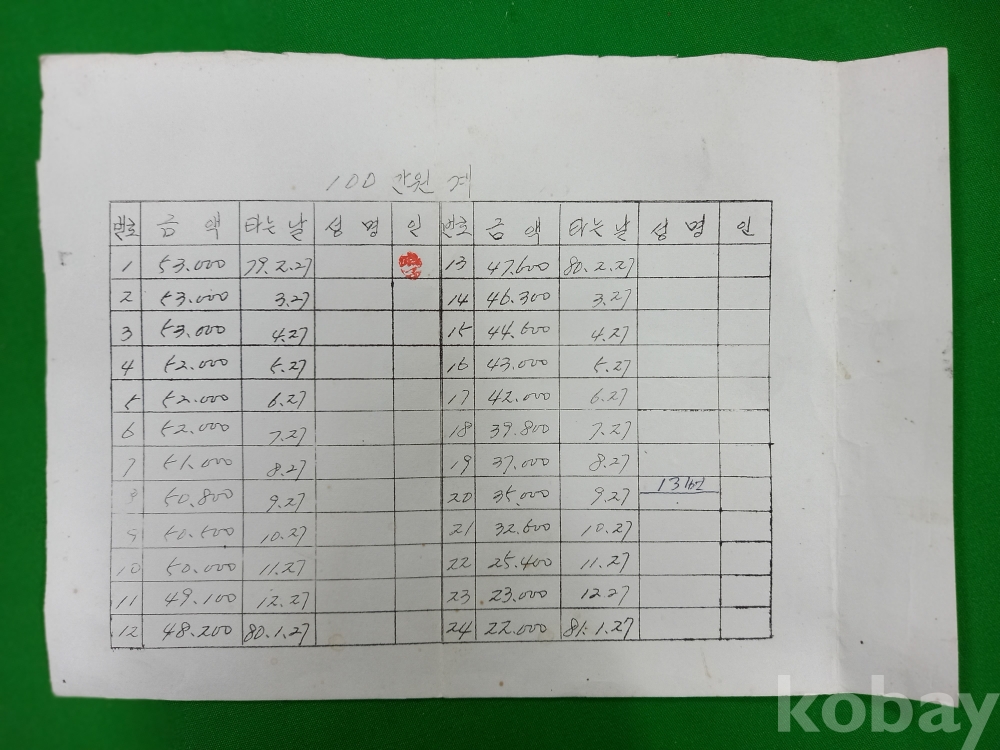 100 만원 계
번호 금액 타는날 성명 인 번호 금액 타는날 성명 인
1 53.000 79.2.27 13 47.600 80.2.27
2 53.000 3.27 14 46.300 3.27
3 53.000 4.27 15 44.600 4.27
4 52.000 5.27 16 43.000 5.27
5 52.000 6.27 17 42.000 6.27
6 52.000 7.27 18 39.800 7.27
7 51.000 8.27 19 37.000 8.27
8 50.800 9.27 20 35.000 9.27 13번
9 50.500 10.27 21 32.600 10.27
10 50.000 11.27 22 25.400 11.27
11 49.100 12.27 23 23.000 12.27
12 48.200 80.1.27 24 22.000 81.1.27
kobay